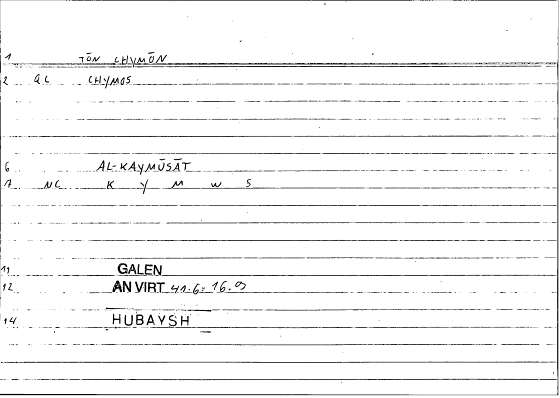 1 TŌN CHYMŌN
2 GL CHYMOS
6 AL-KAYMŪSĀT
7 NC K Y M W S
11 GALEN
12 AN VIRT 41.6 = 16.9
14 HUBAYSH